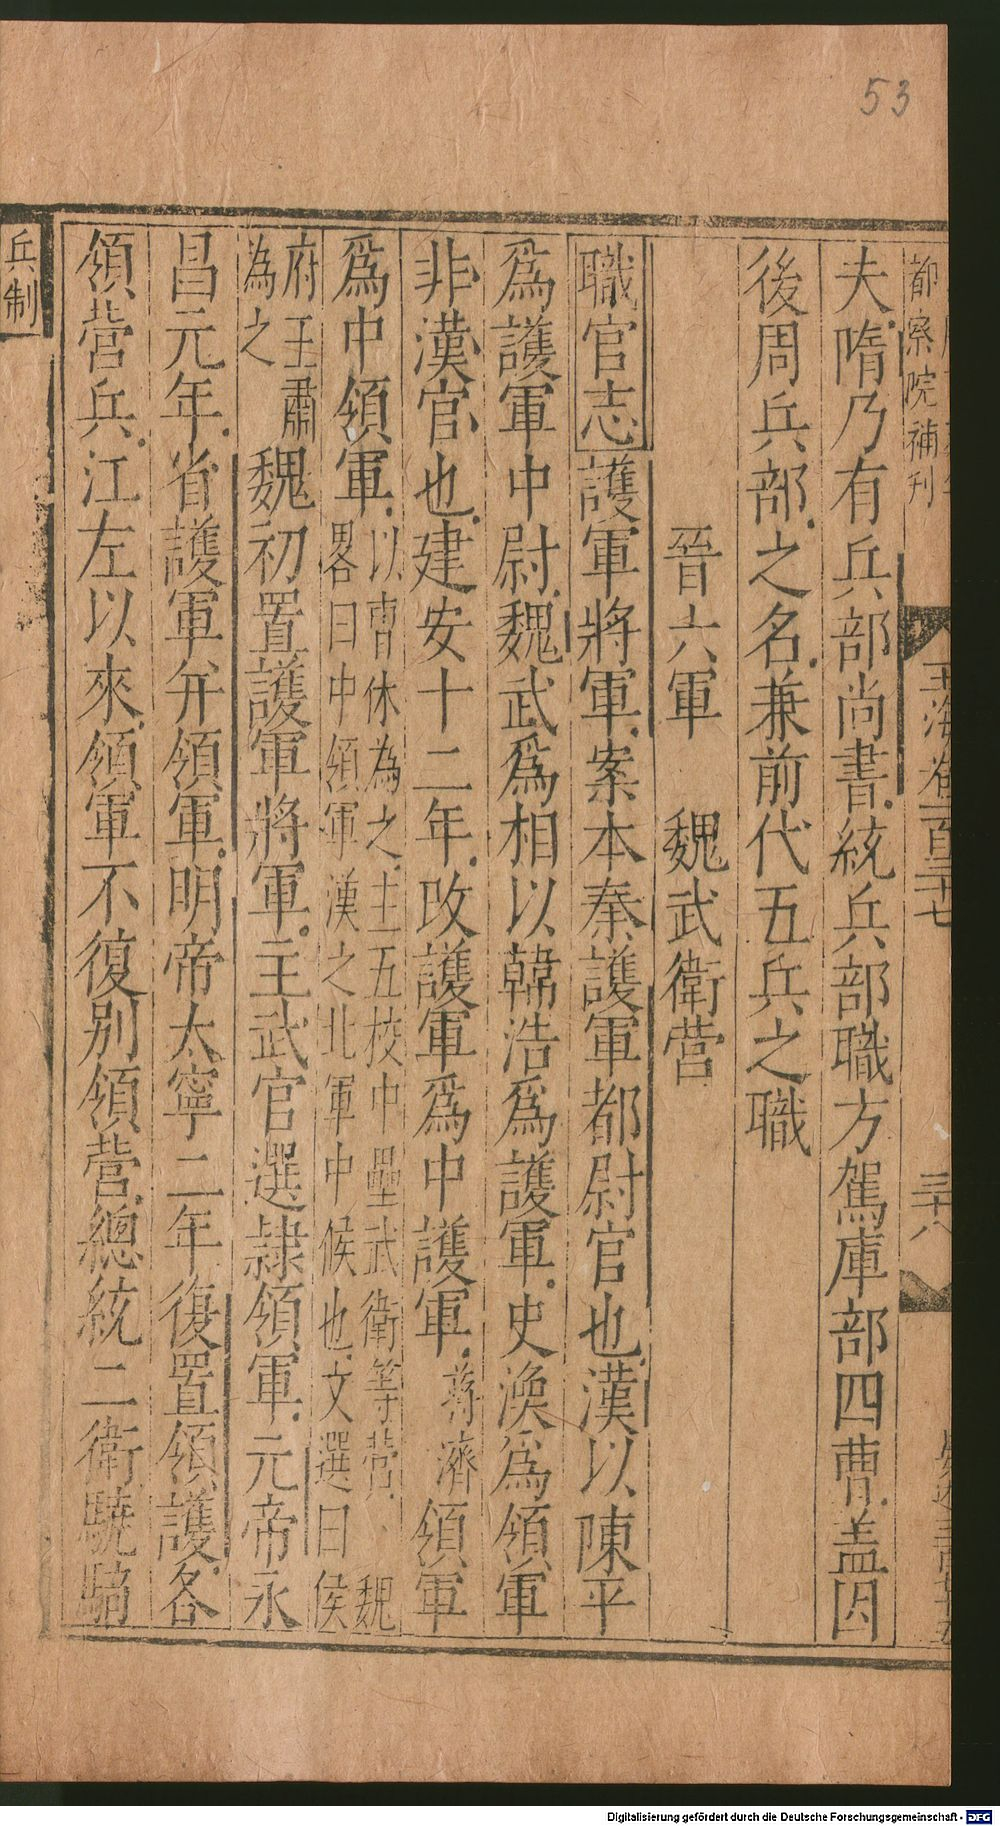 53
都察院補刊
玉海卷一百三十七
三十八
夫隋乃有兵部尚書統兵部職方駕庫部四曹盖因
後周兵部之名兼前代五兵之職
晉六軍　魏武衛營
職官志護軍將軍案本秦護軍都尉官也漢以陳平
爲護軍中尉魏武爲相以韓浩爲護軍史渙爲領軍
非漢官也建安十二年改護軍爲中護軍蔣濟領軍
爲中領軍以曹休為之主五校中壘武衛等營魏
畧曰中領軍漢之北軍中候也文選曰侯
府王肅
為之
魏初置護軍將軍主武官選隷領軍元帝永
昌元年省護軍并領軍明帝太寧二年復置領護各
領營兵江左以來領軍不復别領營總統二衛驍騎
兵制
Digitalisierung gefördert durch die Deutsche Forschungsgemeinschaft - DFG